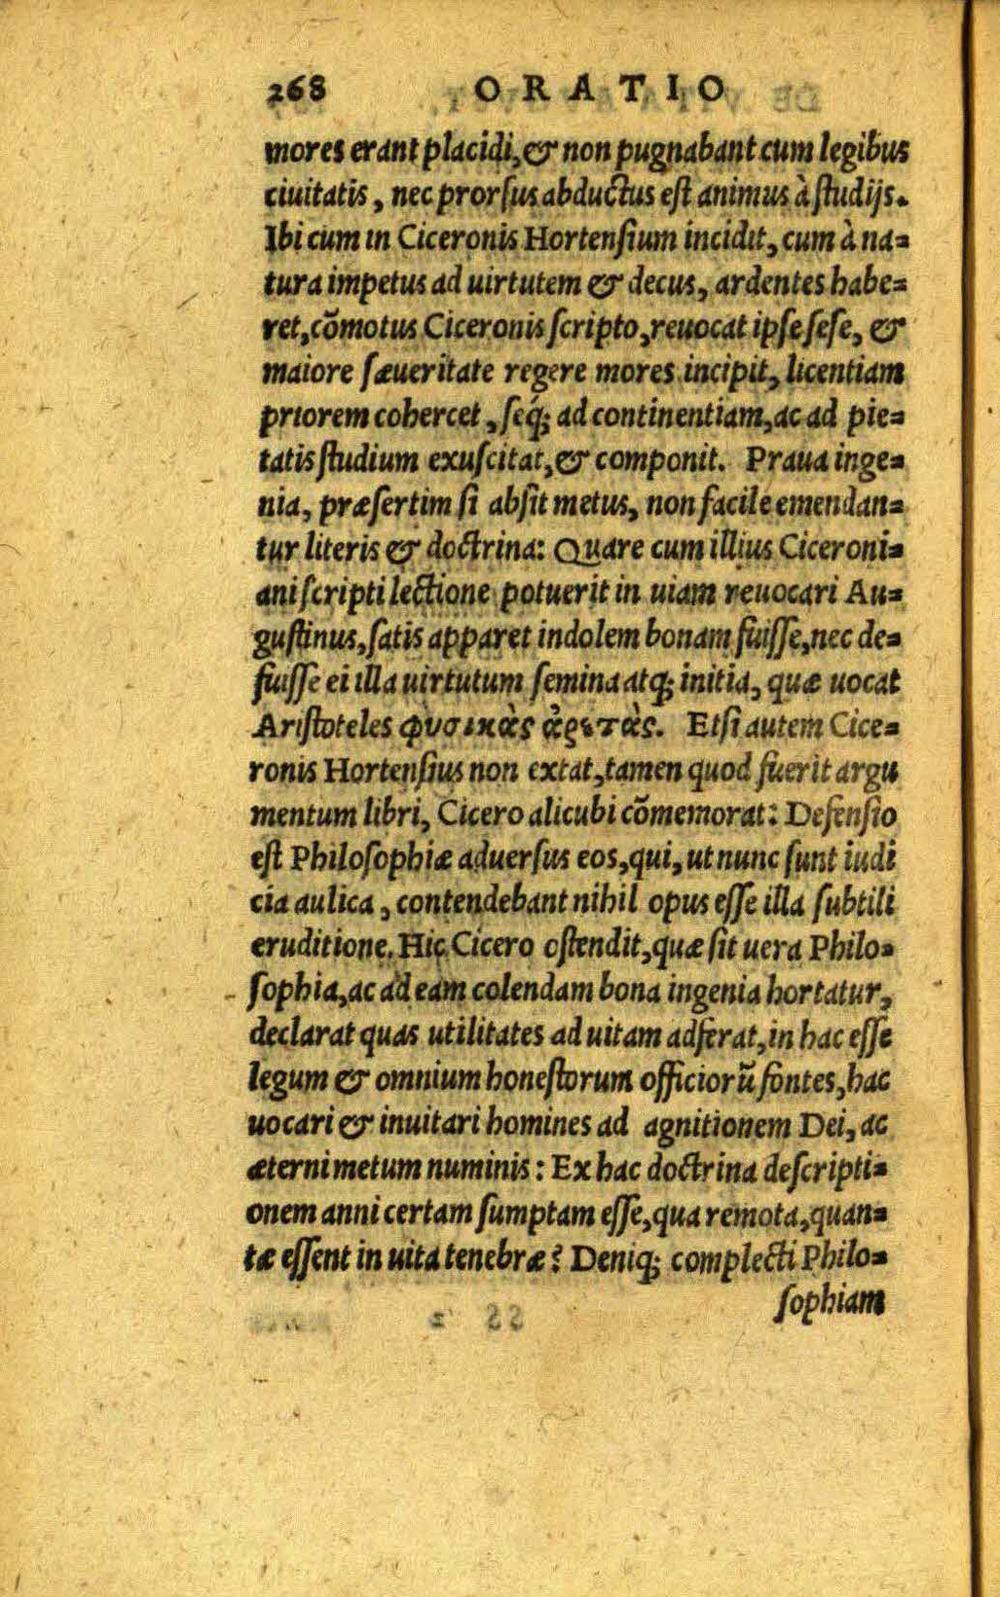 268 ORATIO
mores erant placidi, & non pugnabant cum legibus
ciuitatis, nec prorsus abductus est animus à studijs.
Ibi cum in Ciceronis Hortensium incidit, cum à na=
tura impetus ad uirtutem & decus, ardentes habe=
ret, cõmotus Ciceronis scripto, reuocat ipse sese, &
maiore sæueritate regere mores incipit, licentiam
priorem cohercet, seq́; ad continentiam, ac ad pie=
tatis studium exuscitat, & componit. Praua inge=
nia, præsertim si absit metus, non facile emendan=
tur literis & doctrina: Quare cum illius Ciceroni=
ani scripti lectione potuerit in uiam reuocari Au=
gustinus, satis apparet indolem bonam fuisse, nec de=
fuisse ei illa uirtutum semina atq; initia, quæ uocat
Aristoteles φυσικὰς ἀρετὰς. Etsi autem Cice=
ronis Hortensius non extat, tamen quod fuerit argu
mentum libri, Cicero alicubi cõmemorat: Defensio
est Philosophiæ aduersus eos, qui, ut nunc sunt iudi
cia aulica, contendebant nihil opus esse illa subtili
eruditione. Hic Cicero ostendit, quæ sit uera Philo=
sophia, ac ad eam colendam bona ingenia hortatur,
declarat quas utilitates ad uitam adferat, in hac esse
legum & omnium honestorum officiorũ fontes, hac
uocari & inuitari homines ad agnitionem Dei, ac
æterni metum numinis: Ex hac doctrina descripti=
onem anni certam sumptam esse, qua remota, quan=
tæ essent in uita tenebræ? Deniq; complecti Philo=
sophiam